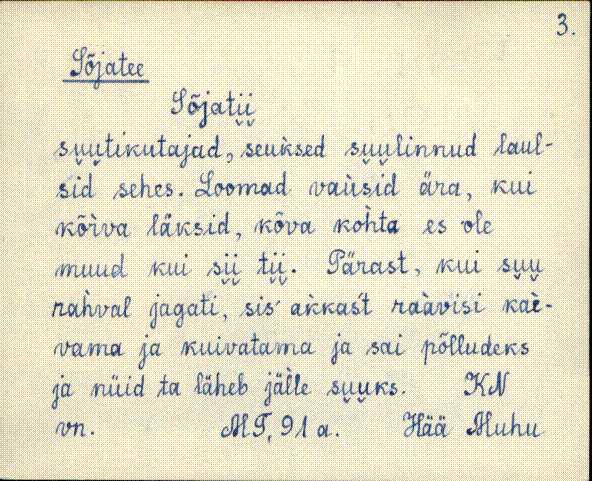 3.
Sõjatee
Sõjati̮i̮
su̮u̮tikutajad, seuksed su̮u̮linnud laul-
sid sehes. Loomad vaùsid ära, kui
kõìva läksid, kõva kohta es ole
muud kui si̮i̮ ti̮i̮. Pärast, kui su̮u̮
rahval jagati, sis akkast raàvisi kaè-
vama ja kuivatama ja sai põlludeks
ja nüid ta läheb jälle su̮u̮ks. KN
vn. MT, 91 a. Hää Muhu